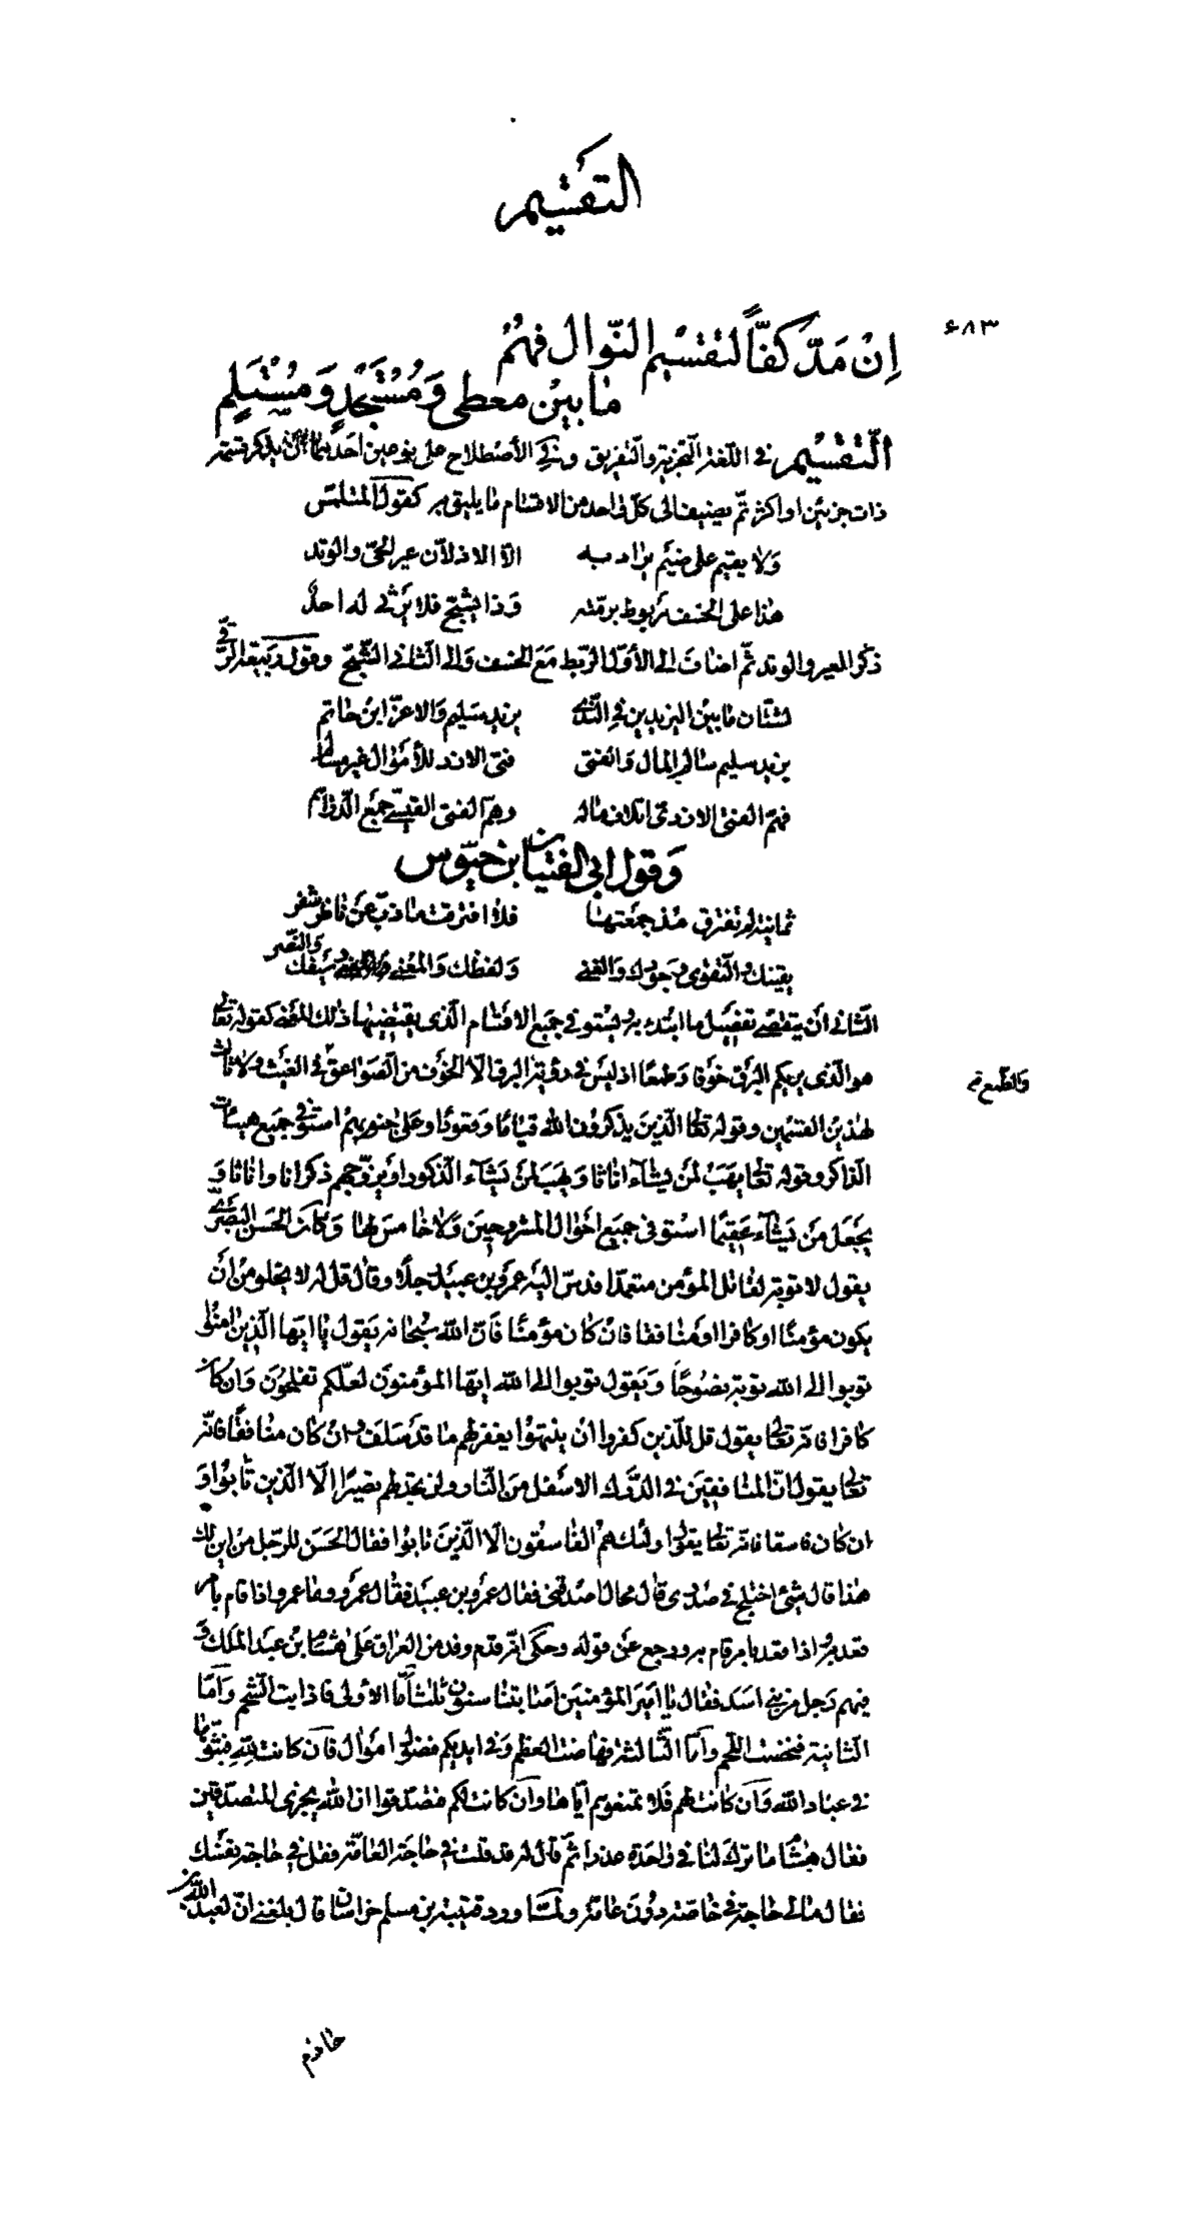 التقسيم
۶۸۳
اِنْ مَدّ كفّاً لتقسيم النّوال فهُمْ
مٰا بينْ معطى وَمُسْتَجْدٍ وَمُسْتَلِمٍ
التّقسْيم فى اللّغة التجزية والتّفريق وفى الأصطلاح على نوعين احدهما ان يذكر قسمة
ذات جزئين او اكثر ثمّ يضيف الى كلّ واحد من الاقسام ما يليق به كقول المتلمّس
وَلا يقيم على ضَيْم يراد به الّا الاذلّان عير الحىّ والوتد
هذا على الخسف مربوط برمّته وَذا يشجّ فلا يرْثى له احدٌ
ذكر العير والوتد ثمّ اضاف الى الأوّل الربط مَع الخسف وَالى الثّانى الشّجّ وقول ربيعة الرقّى
لشتّان مٰا بين اليزيدين فى النّدى يزيد سَليم وَالاغرّ ابنُ حٰاتم
يزيد سليم سٰالم المال وَالفتى فتى الازد للأموٰال غير مسٰالم
فهمّ الفتى الازدىّ اتلاف ماله وهمّ الفتى القيسى جمع الدّرٰاهم
وَقول ابى الفتيان ابن حيّوس
ثمانية لم تفترق مذ جمعتهٰا فلا افترقت مٰا ذبّ عن ناظر شفر
يقينك والتّقوى وَجودك وَالغنى وَلفظك وَالمعْنى وَسَيفك وَالنّصر
الثّانى أن يتقصّى تفصيل ما ابتدء به ويستوفى جميع الاقسٰام الّذى يقتضيهٰا ذلك المعنى كقوله تعٰالى
هو الّذى يريكم البَرْق خوْفا وَطمعًا اذ ليس فى رؤية البرق الّا الخوْف من الصّوٰاعق فى الغيث ولا ثالث
وَالطّمع
لهٰذين القسمين وقوله تعالى الّذينَ يذكرُون اللّه قيٰامًا وَقعودًا وعَلى جنوبهمْ استوفى جميع هيئات
الذاكر وقوله تعالى يهَبُ لمنْ يشٰاء اناثا وَيهَبَ لمنْ يَشٰآء الذّكور او يزوّجهم ذكرانا وانٰاثا وَ
يجْعَل من يَشٰآء عقيمًا استوفى جميع احْوٰال المتزوجينَ وَلا خٰامسَ لهٰا وَكانَ الحَسَن البَصْرىّ
يقول لا توبة لقٰاتل المؤمن متعمّدا فدسّ اليْه عمرو بن عبيد رجلًا وقال قل له لا يخلو منْ انْ
يكون مؤمنًا او كافرا اوْ منٰافقا فانْ كٰان مؤمنًا فَانّ اللّه سُبْحٰانه يَقول يٰا ايّها الّذين اٰمنُوا
توبوا الى اللّه توبة نصُوحًا وَيَقول توبوا الى اللّه ايّها المؤمنون لعلّكم تفلحُونَ وَان كان
كافرا فانّه تعٰالى يقول قل للّذين كفروا انْ ينتهوْا يغفر لهم مٰا قدْ سَلفَ وَانْ كان منٰافقًا فانّه
تعٰالى يقول انّ المنٰافقينَ فى الدّرك الاسْفل من النّار ولن تجد لهم نصيرًا الّا الّذين تٰابُوا وَ
ان كٰان فاسقا فانّه تعٰالى يقول واولئك همُ الفٰاسقون الا الّذين تابُوا فقال الحَسَن للرّجل من اين لك
هٰذا قال شئ اختلج فى صدرى قال محال اصدقنى فقال عمرو بن عبيد فقال عمرو ومٰا عمرو اذا قام بأمر
قعد به واذا قعد بامر قام به ورجع عن قوله وحكى انّه قدم وفد من العرٰاق عَلى هشٰام بن عبد الملك وَ
فيهم رَجل من بنى اسَد فقٰال يٰا اميرَ المؤمنين اصٰابتنا سنون ثلٰث أمّا الأولى فاذابت الشّحم وَامّا
الثانية فنحضت اللّحم وامّا الثّالثة فهٰاضت العظم وَفى ايديكم فضول امْوٰال فان كانت للّه فبثّوهٰا
فى عبٰاد اللّه وَان كٰانت لهم فلا تمنعوهم ايّاهٰا وَان كانت لكم فتصدّقوا ان اللّه يجزى المتصدّقين
فقال هشٰام مٰا تركَ لنٰا فى وٰاحدة عذرا ثمّ قال له قد قلت فى حٰاجة العٰامّة فقل فى حٰاجة نفسك
فقال مٰالى حٰاجة فى خٰاصّة دوُن عٰامّة ولمّا ورد قتيبة بن مسلم خراسٰان قال بلغنى انّ لعبد اللّه بن
خازم